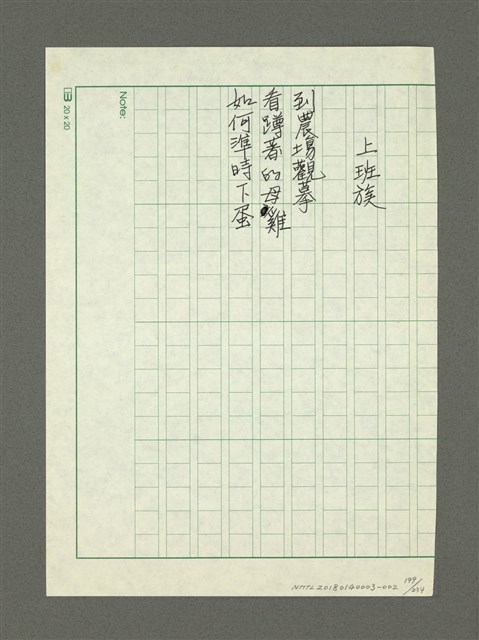 上班族
到農場觀摹
看蹲著的母雞
如何準時下蛋
Note:
20 x 20
NMTL20180140003-002
199/234